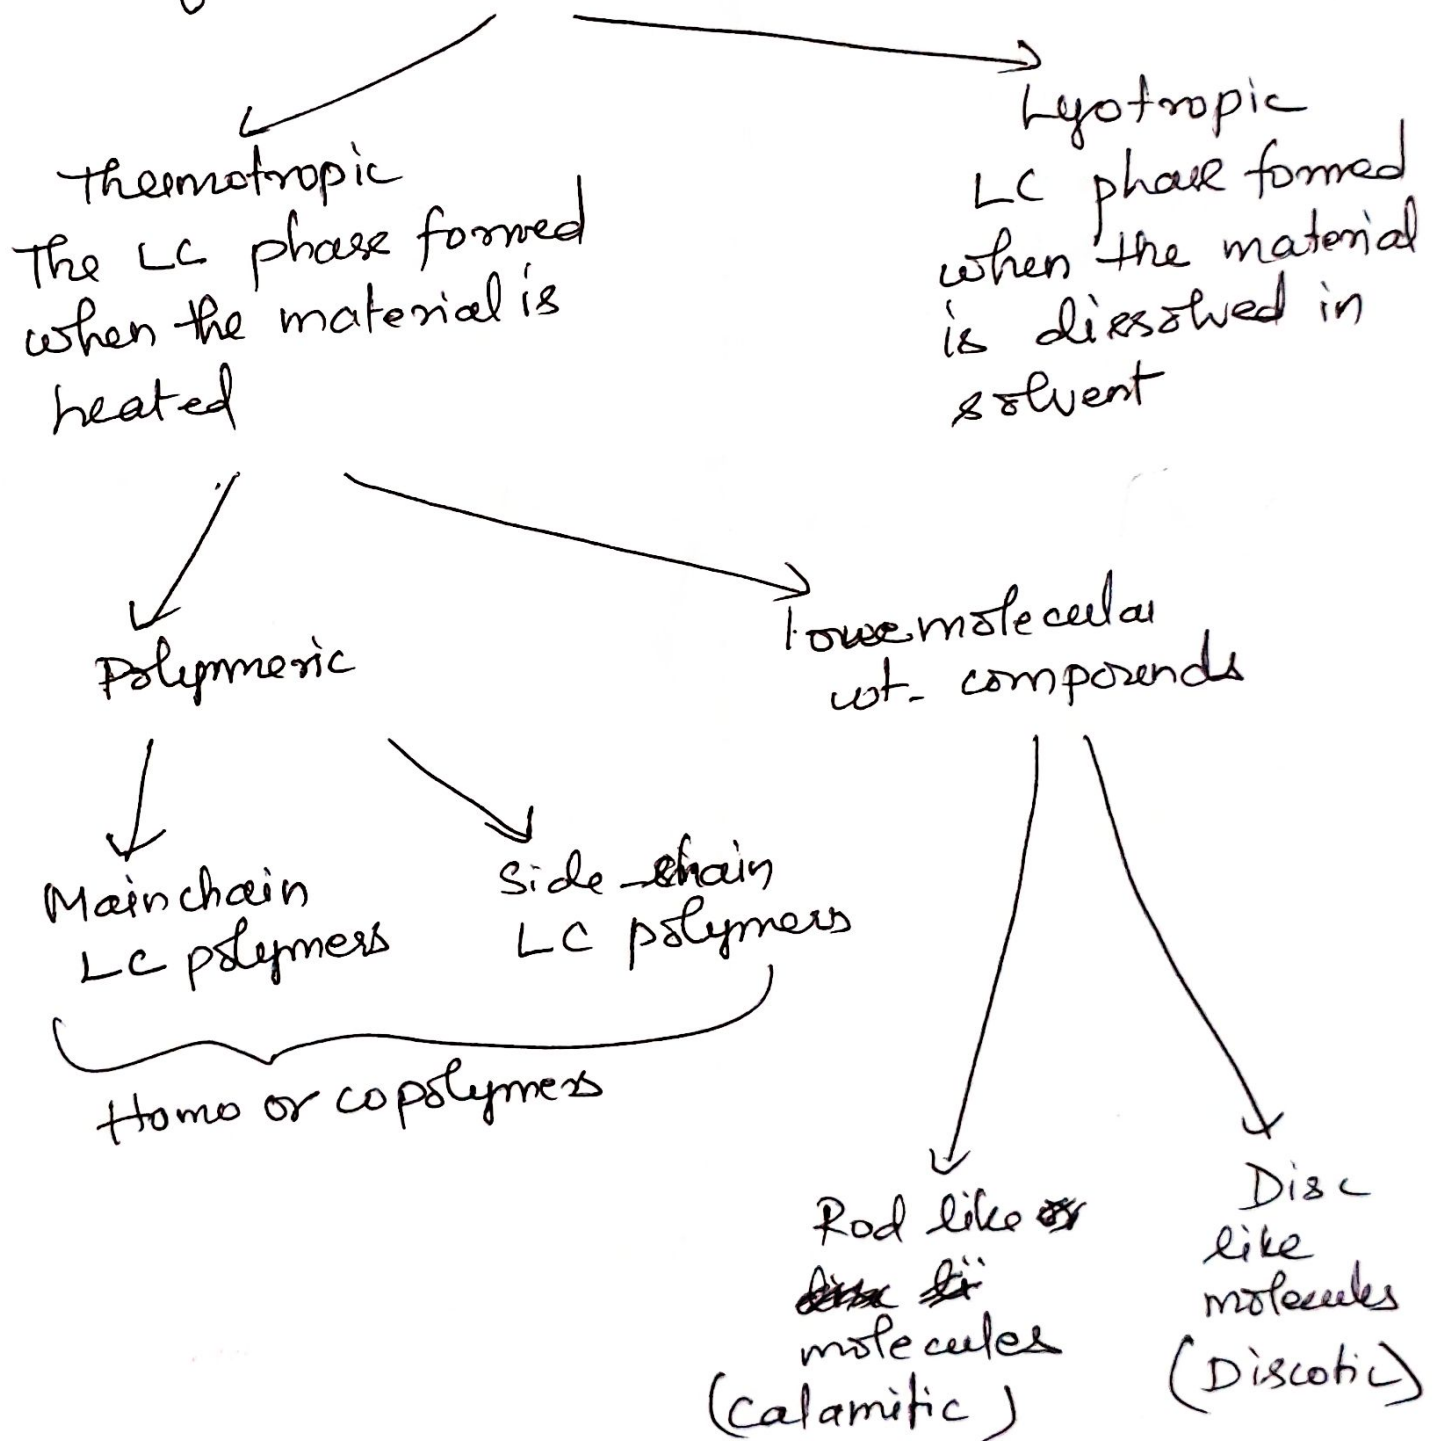 Thermotropic
The LC phase formed
when the material is
heated
Lyotropic
LC phase formed
when the material
is dissolved in
solvent
Polymeric
lowemolecular
wt. compounds
Mainchain
LC polymers
Side-chain
LC polymers
Homo or copolymers
Rod like
molecules
(Calamitic)
Disc
like
molecules
(Discotic)